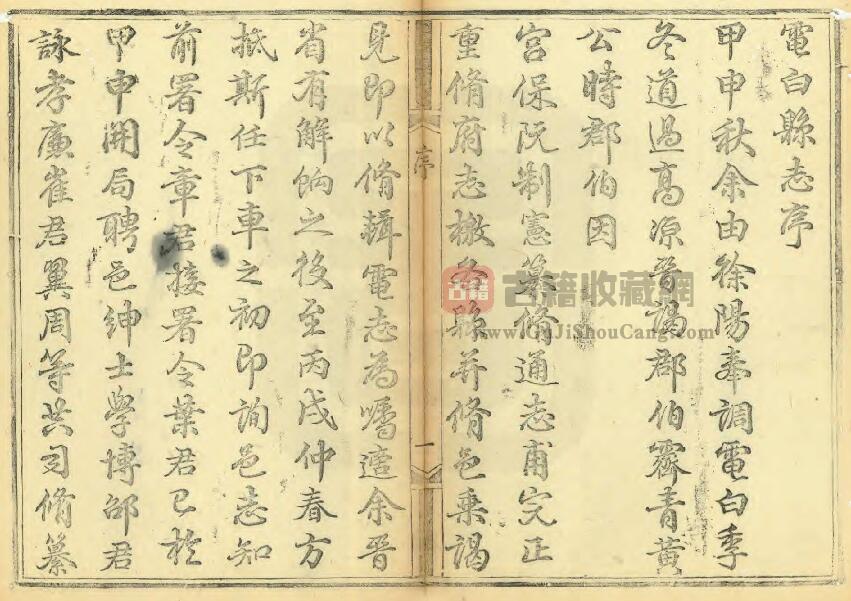 電白縣志序
甲申秋余由徐陽奉調電白季
冬道過高凉晉謁郡伯霽青黃
公時郡伯因
宮保阮制憲纂脩通志甫完正
重脩府志檄各縣并脩邑乘謁
序
一
見即以脩輯電志為囑適余晉
省有解餉之後至丙戌仲春方
抵斯任下車之初即詢邑志知
前署令章君接署令葉君已於
甲申開局聘邑紳士學博邵君
詠孝廉崔君翼周等共司脩纂
古籍
古籍收藏網
www.GuJiShouCang.com